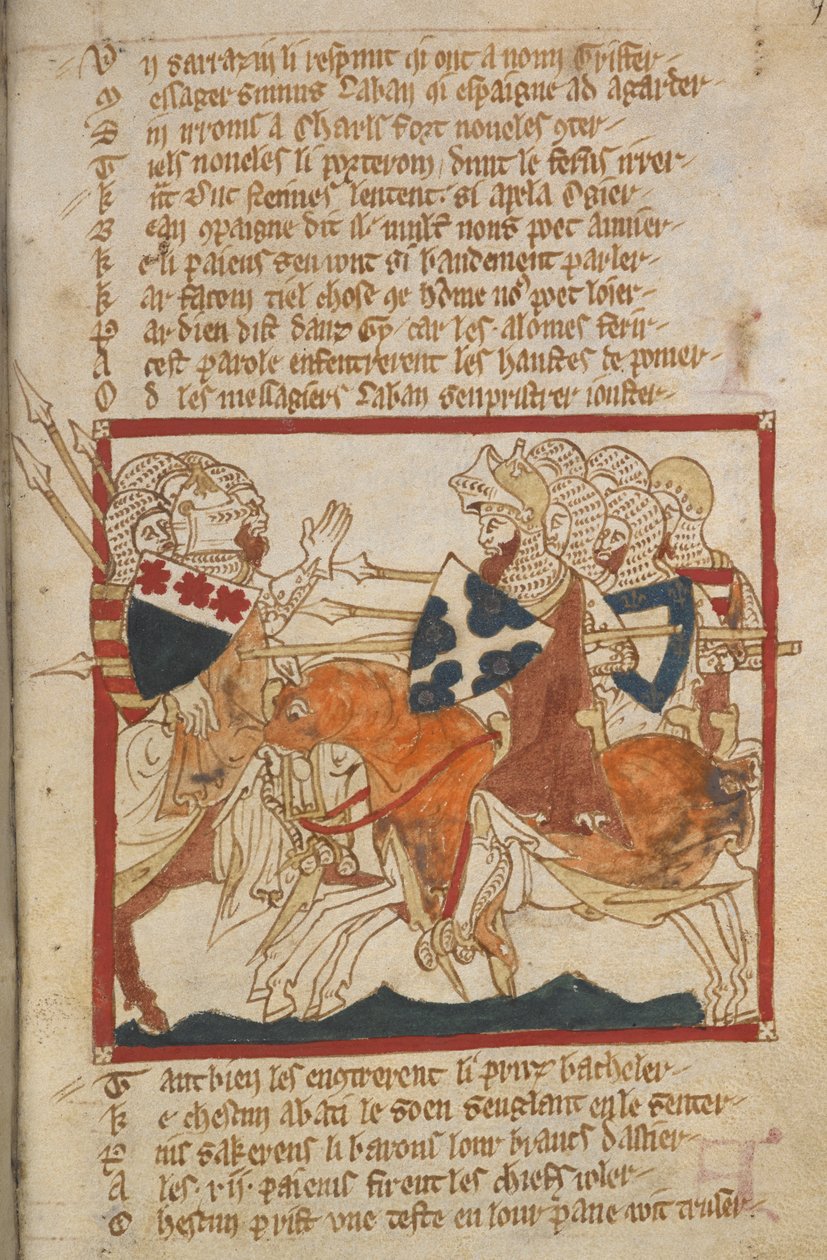 V n sarrazin li respount qi out a noun Griffer
M essager sumus Laban qi espaigne ad a garder
S in irroms a Charls fort noveles 9ter
T iels noveles li porterom dunt le ferns irrer
k nt duc Neimes lentent si apela Ogier
B eau 9paigne dit il mult nous poet anuier
k e li paiens sen vont si baudement parler
k ar facom tiel chose qe home nos poet loser
P ar dieu dist dauz Gy car les aloines ferir
A cest parole ensentrerent les haustes de pomer
O d les messagiers Laban sen pristrer iouster
T ant bien les encstrerent li pruz bacheler
k e chescun abati le soen senglant en le senter
P uis sakerens li barons lour brancs dascier
A les vii paiens firent les chiefs voler
C hescun prist une teste en lour pane vont truser